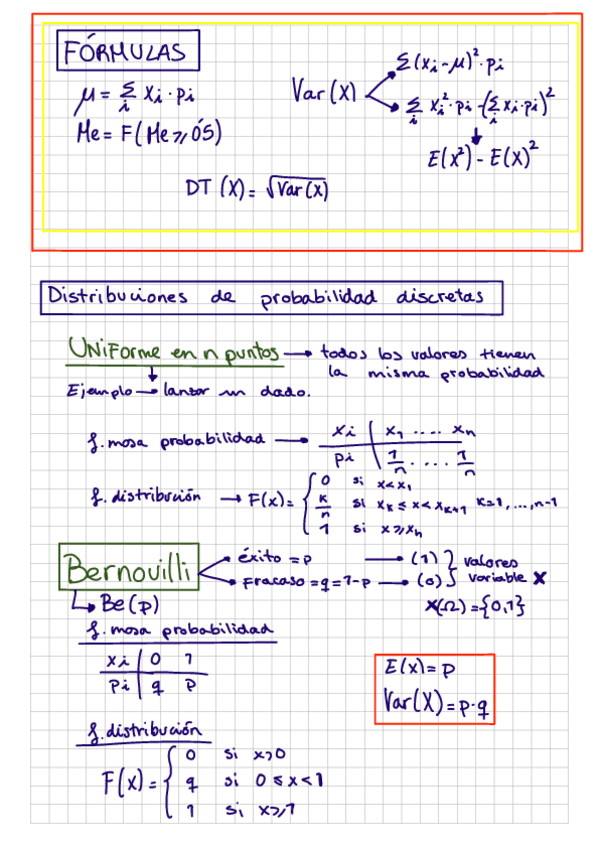 FÓRMULAS
μ = Σ_i xi · pi
Me = F(Me ⩾ 0'5)
Var(X)
Σ(xi - μ)² · pi
Σ_i xi² · pi - (Σ_i xi · pi)²
E(x²) - E(X)²
DT (X) = √Var(X)
Distribuciones de probabilidad discretas
UNiForme en n puntos → todos los valores tienen
la misma probabilidad
Ejemplo → lanzar un dado.
f. masa probabilidad → xi | x1 .... xn
pi | 1/n .... 1/n
f. distribución → F(x) = { 0 si x < x1
K/n si xK ≤ x < xK+1 K=1,...,n-1
1 si x ⩾ xn
Bernouilli
éxito = p → (1) } valores
Fracaso = q = 1-p → (0) } variable X
Be(p)
X(Ω) = {0,1}
f. masa probabilidad
xi | 0 1
pi | q p
E(x) = p
Var(X) = p · q
f. distribución
F(x) = { 0 si x>0
q si 0 ≤ x < 1
1 si x ⩾ 1